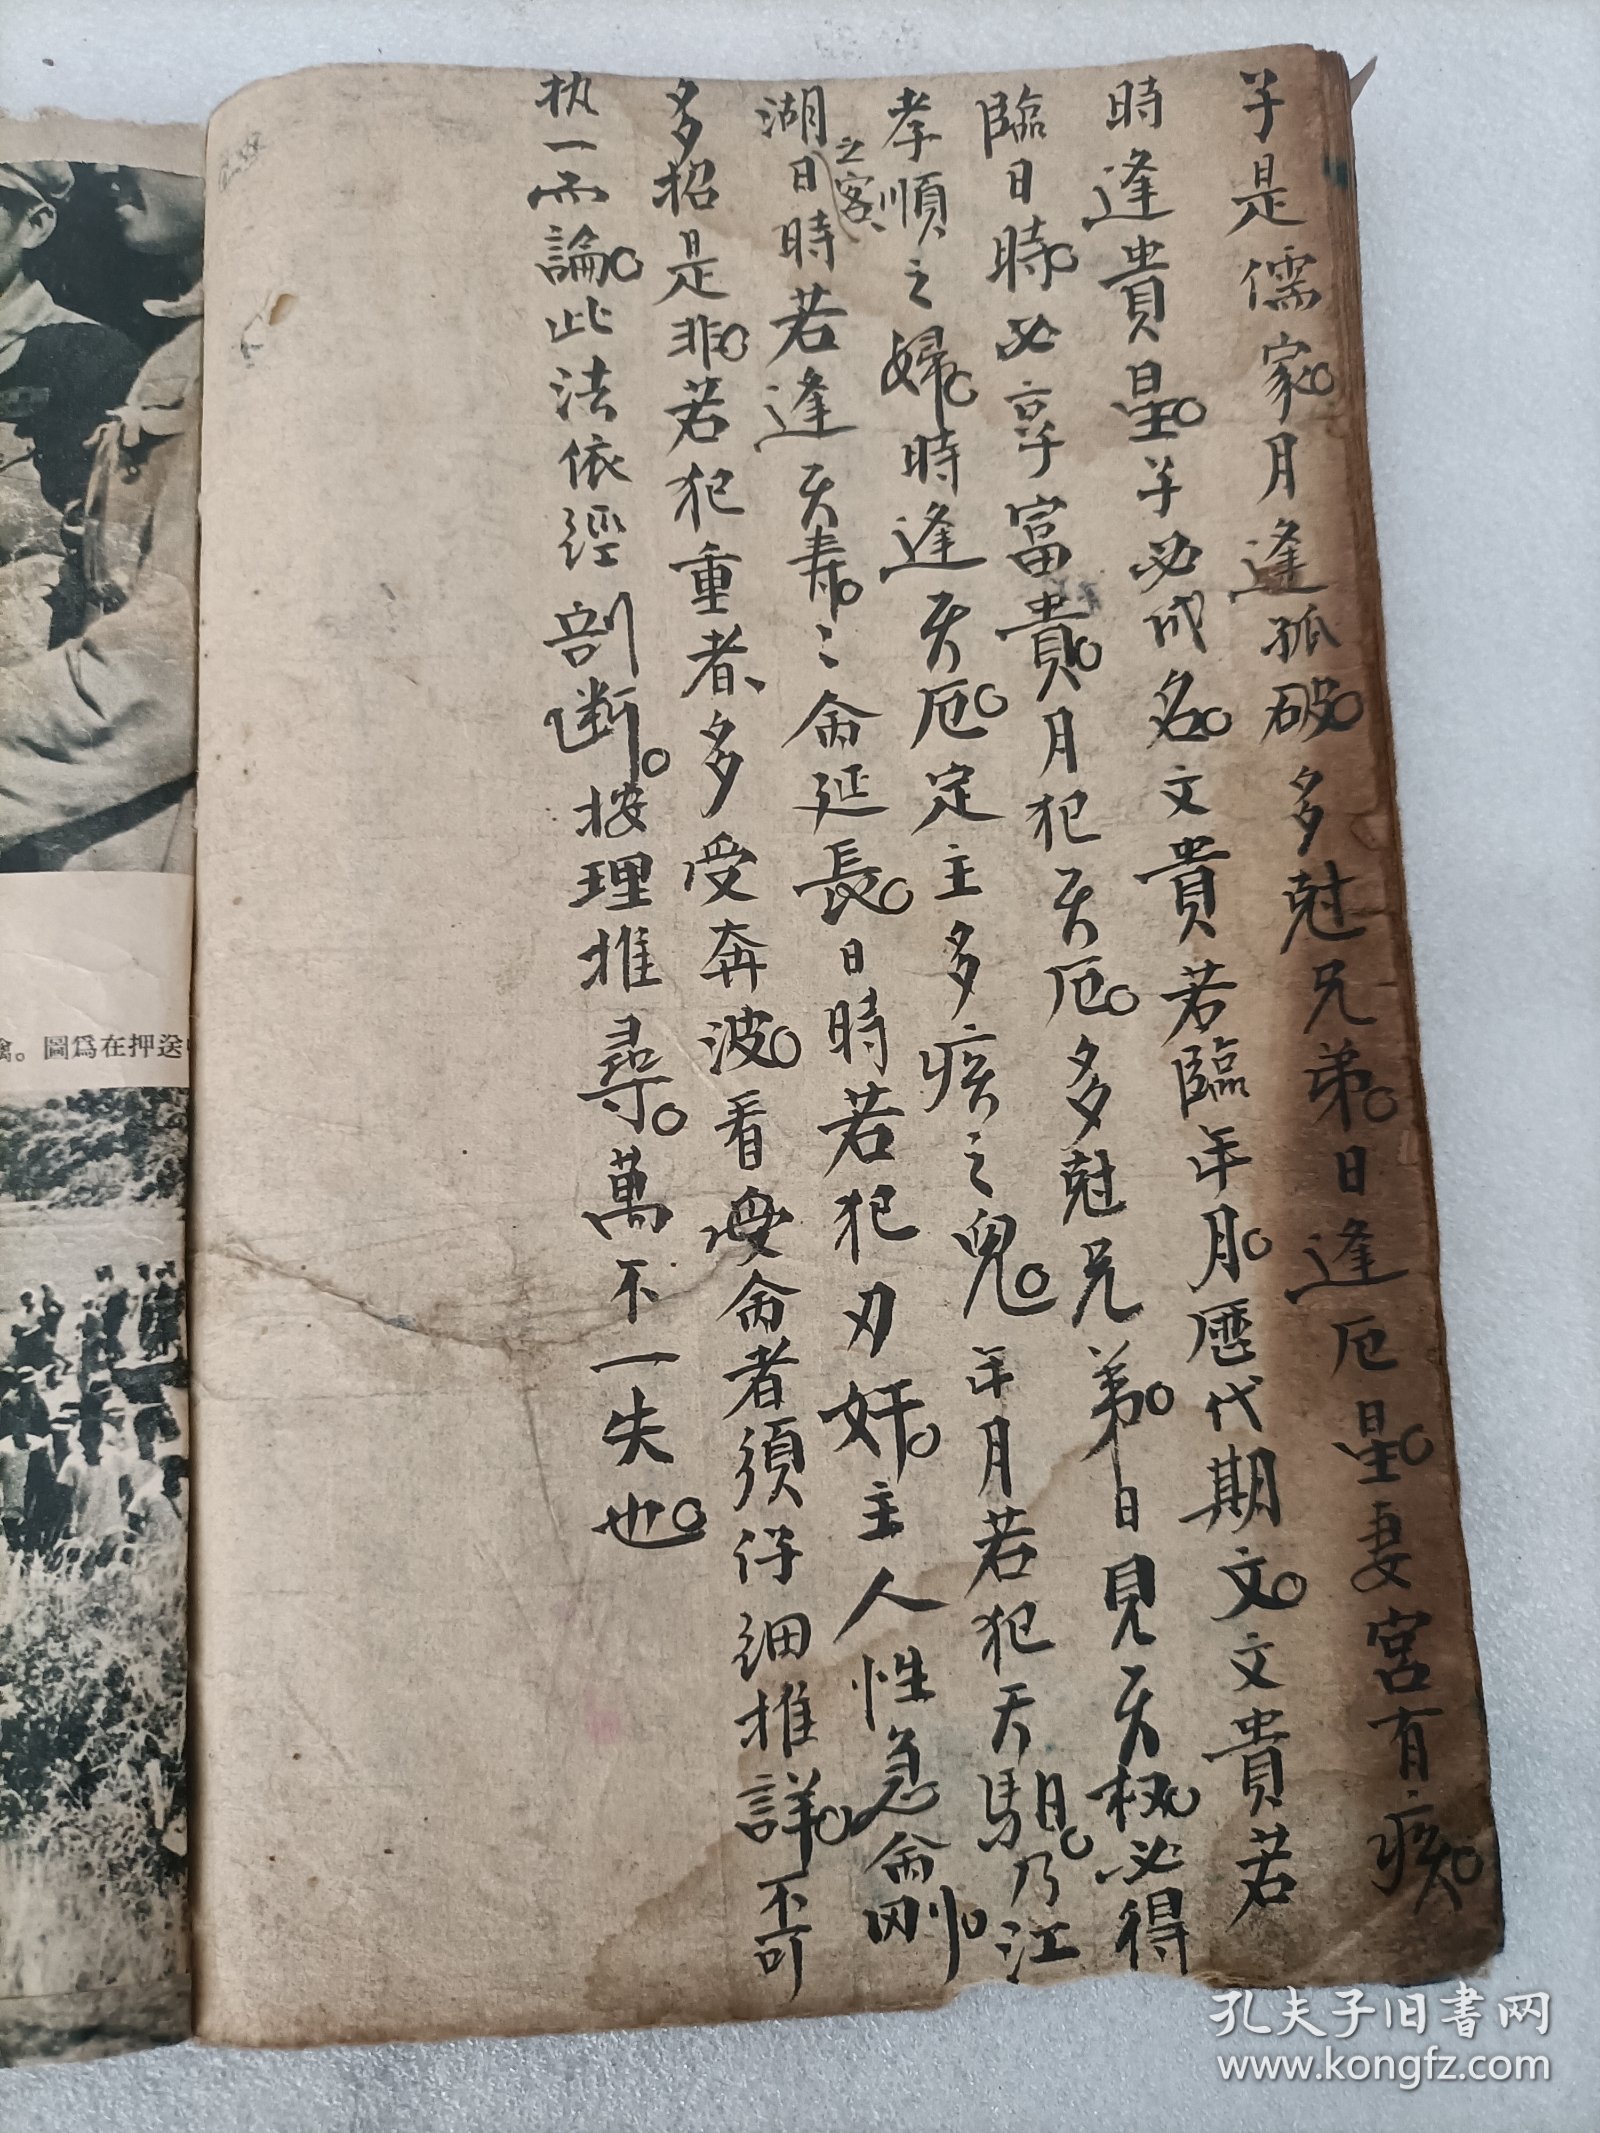 子是儒家月逢孤破多尅兄弟日逢厄星妻宮有疾
時逢貴星子必成名文貴若臨年月歷代期文文貴若
臨日時必享富貴月犯天厄多尅兄弟日見天权必得
孝順之婦時逢天厄定主多疾之兒年月若犯天馹乃江
湖之客日時若逢天寿〻命延長日時若犯刃奸主人性急命刚
多招是非若犯重者多受奔波看命者須仔細推詳不可
执一而論此法依經剖断按理推尋萬不一失也
擒。圖爲在押送
孔夫子旧书网
www.kongfz.com